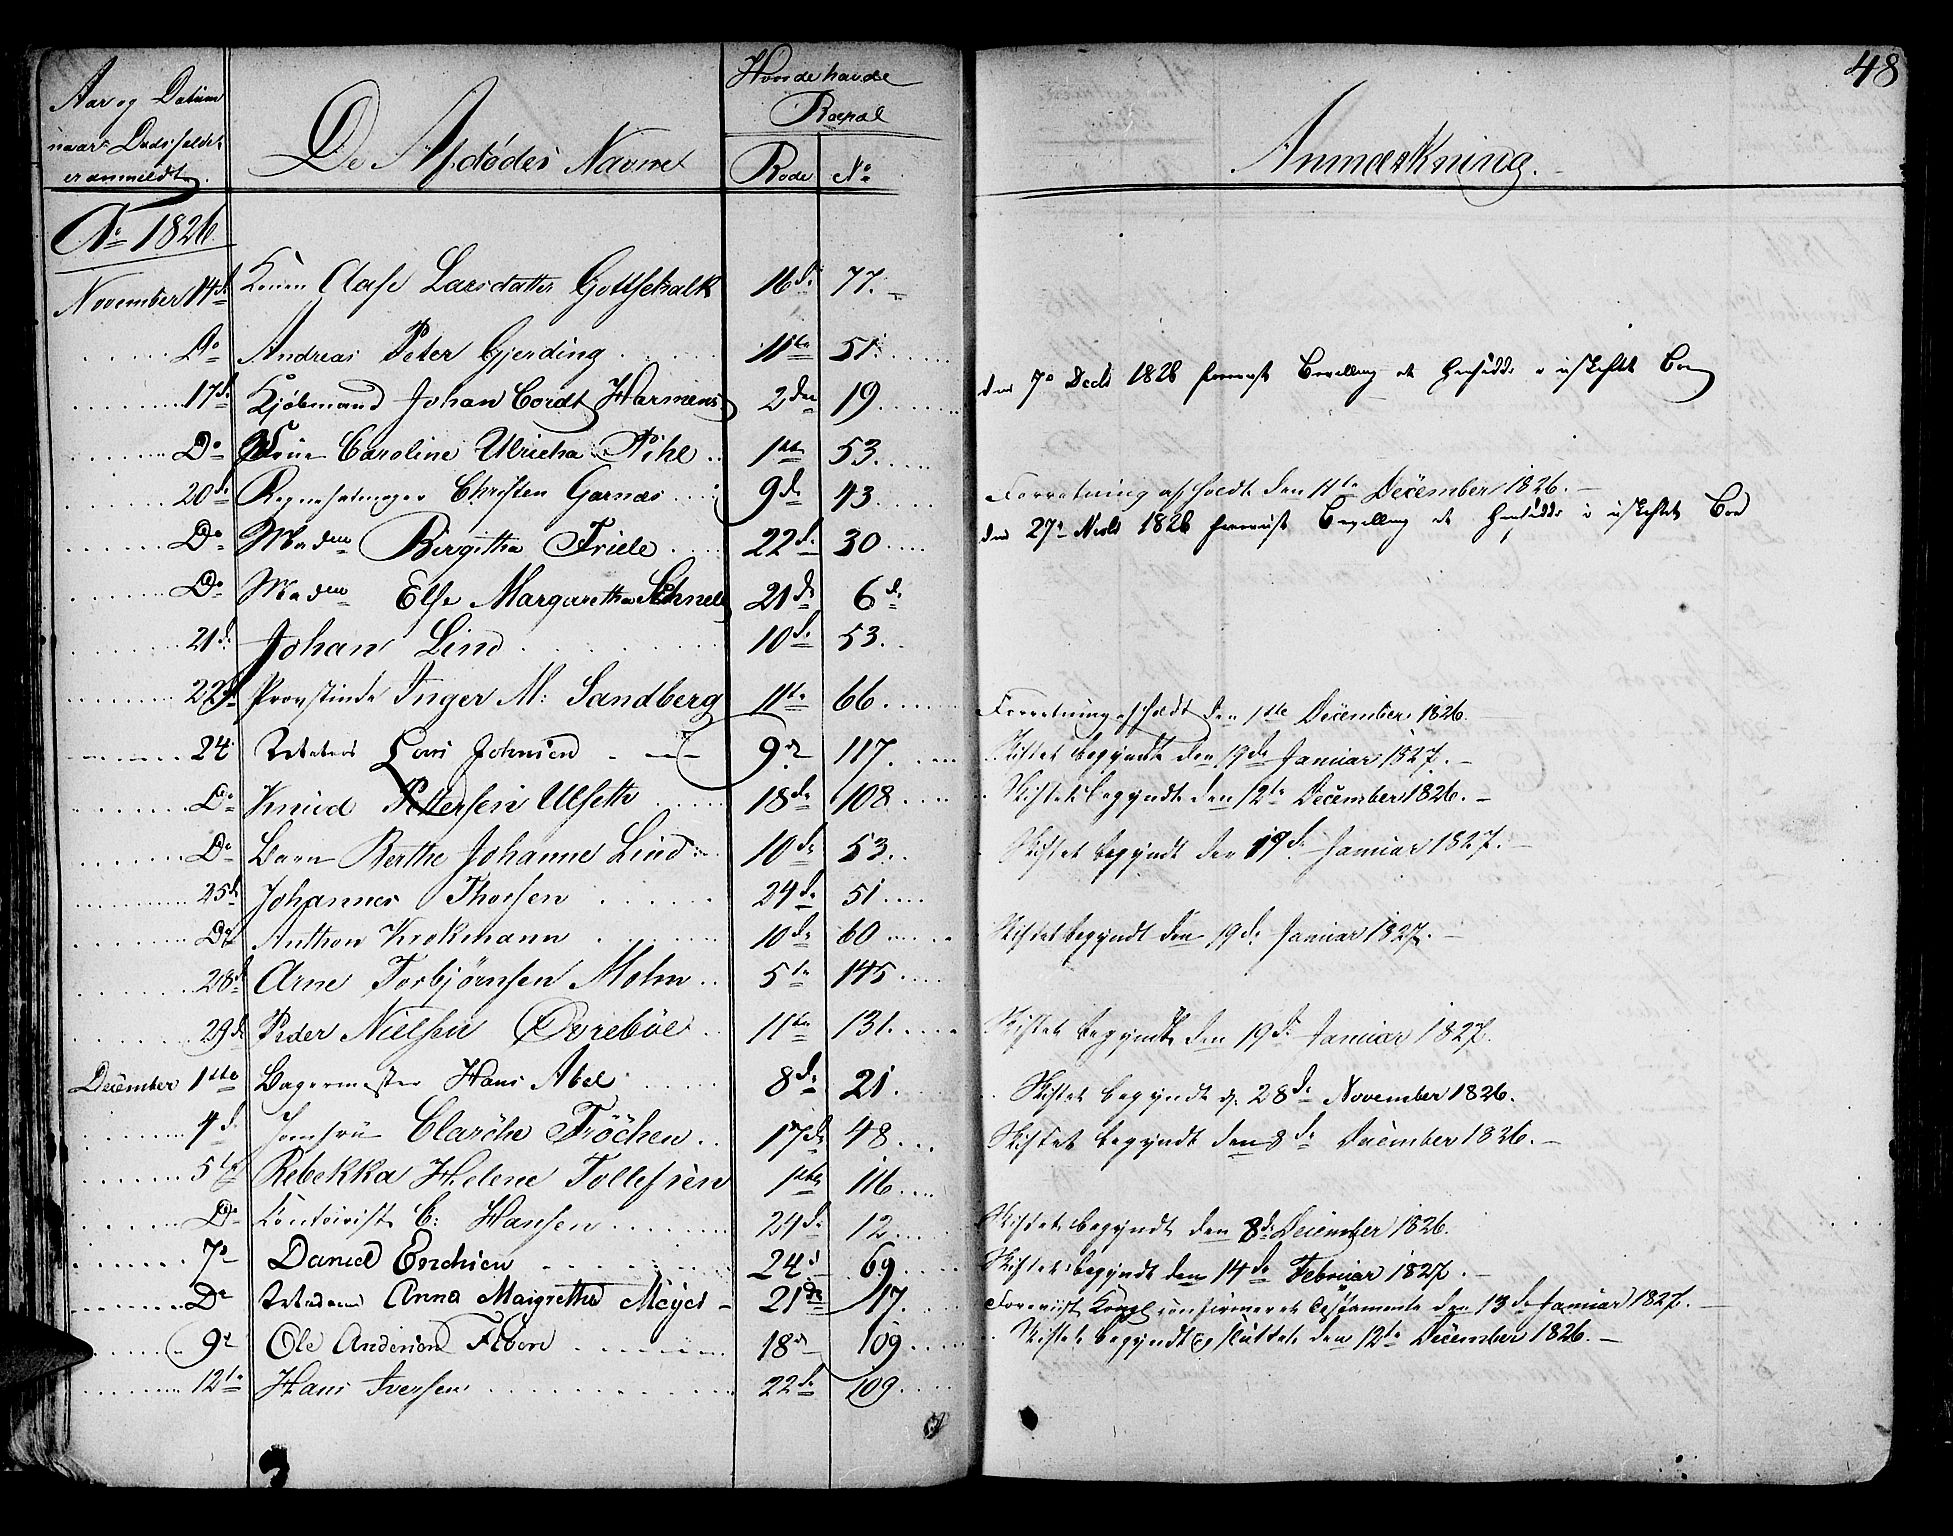 48
Aar og Datum
naar Dødsfaldet
er anmeldt.
De Afdødes Navne
Hvor de havde
Boepæl
Rode No
Anmærkning.
Ao 1826
November 14de Konen Aase Larsdatter Gottschalk 16de 77.
Do Andreas Peter Gjerding 11te 51.
17de Kjøbmand Johan Cordt Harmens 2den 19. den 7de Decbr 1826 forevist Bevilling at hensidde i uskiftet Boe
Do Caroline Ulricha Pihl 1ste 53.
20de Christen Garnæs 9de 43. Forretning afholdt den 11te December 1826.
Do Madme Birgitha Friele 22de 30 den 27de Novbr 1826 forevist Bevilling at hensidde i uskiftet Boe
Do Madme Else Margaretha Schnell 21de 6de
21de Johan Lind 10de 53.
22de Provstinde Inger M: Sandberg 11te 66. Forretning afholdt den 1ste December 1826.
24 Lars Johnsen 9de 117. Skiftet begyndt den 19de Januar 1827.
Do Knud Pettersen Ulseth 18de 108 Skiftet begyndt den 12te December 1826.
Do Barn Berthe Johanne Lind 10de 53. Skiftet begyndt den 19de Januar 1827.
25de Johannes Thorsen 24de 51
Do Anthon Krokmann 10de 60 Skiftet begyndt den 19de Januar 1827.
28de Arne Torbjørnsen Molm 5te 145
29de Peder Nielsen Øvrebøe 11te 131. Skiftet begyndt den 19de Januar 1827.
December 1ste Bagermester Hans Abel 8de 21. Skiftet begyndt d. 28de November 1826.
4de Jomfrue Claröhe Fröchen 17de 48 Skiftet begyndt den 8de December 1826.
5te Rebekka Helene Tollefsen 1ste 116
Do Contoirist C: Hansen 24de 12 Skiftet begyndt den 8de December 1826.
7de Daniel Erichsen 24de 69 Skiftet begyndt den 14de Februar 1827.
Do Madame Anna Maigretha Meyer 21de 17. Forevist Kongl confirmeret Testamente den 13de Januar 1827.
9de Ole Andersen Floen 18de 109 Skiftet begyndt og sluttet den 12te December 1826.
12te Hans Iversen 22de 109